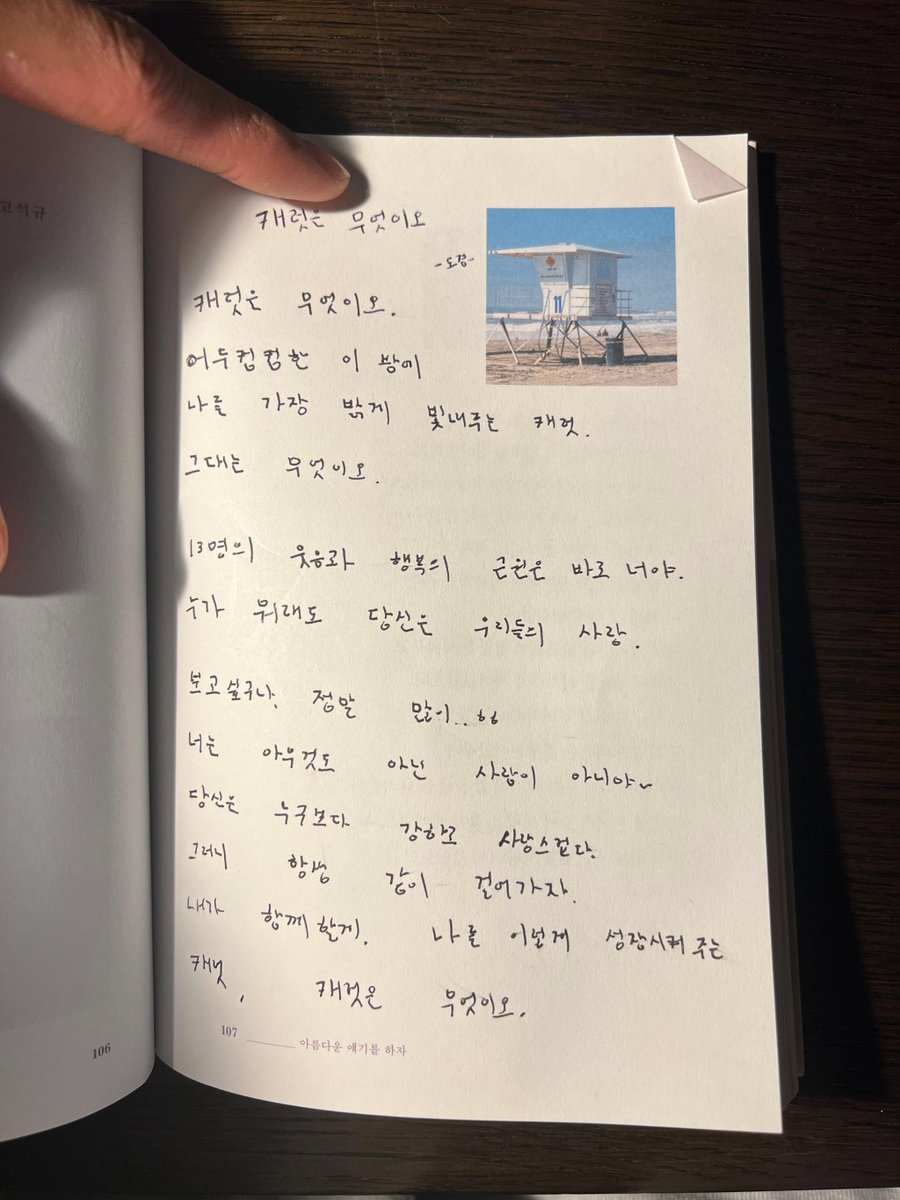 고석규
캐럿은 무엇이오
-도겸-
캐럿은 무엇이오.
어두컴컴한 이 밤에
나를 가장 밝게 빛내주는 캐럿.
그대는 무엇이오.
11
13명의 웃음과 행복의 근원은 바로 너야.
누가 뭐래도 당신은 우리들의 사랑.
보고싶구나, 정말 많이..ㅎㅎ
너는 아무것도 아닌 사람이 아니야~
당신은 누구보다 강하고 사랑스럽다.
그러니 항상 같이 걸어가자.
내가 함께할게. 나를 이렇게 성장시켜 주는
캐럿, 캐럿은 무엇이오.
107 아름다운 얘기를 하자
106